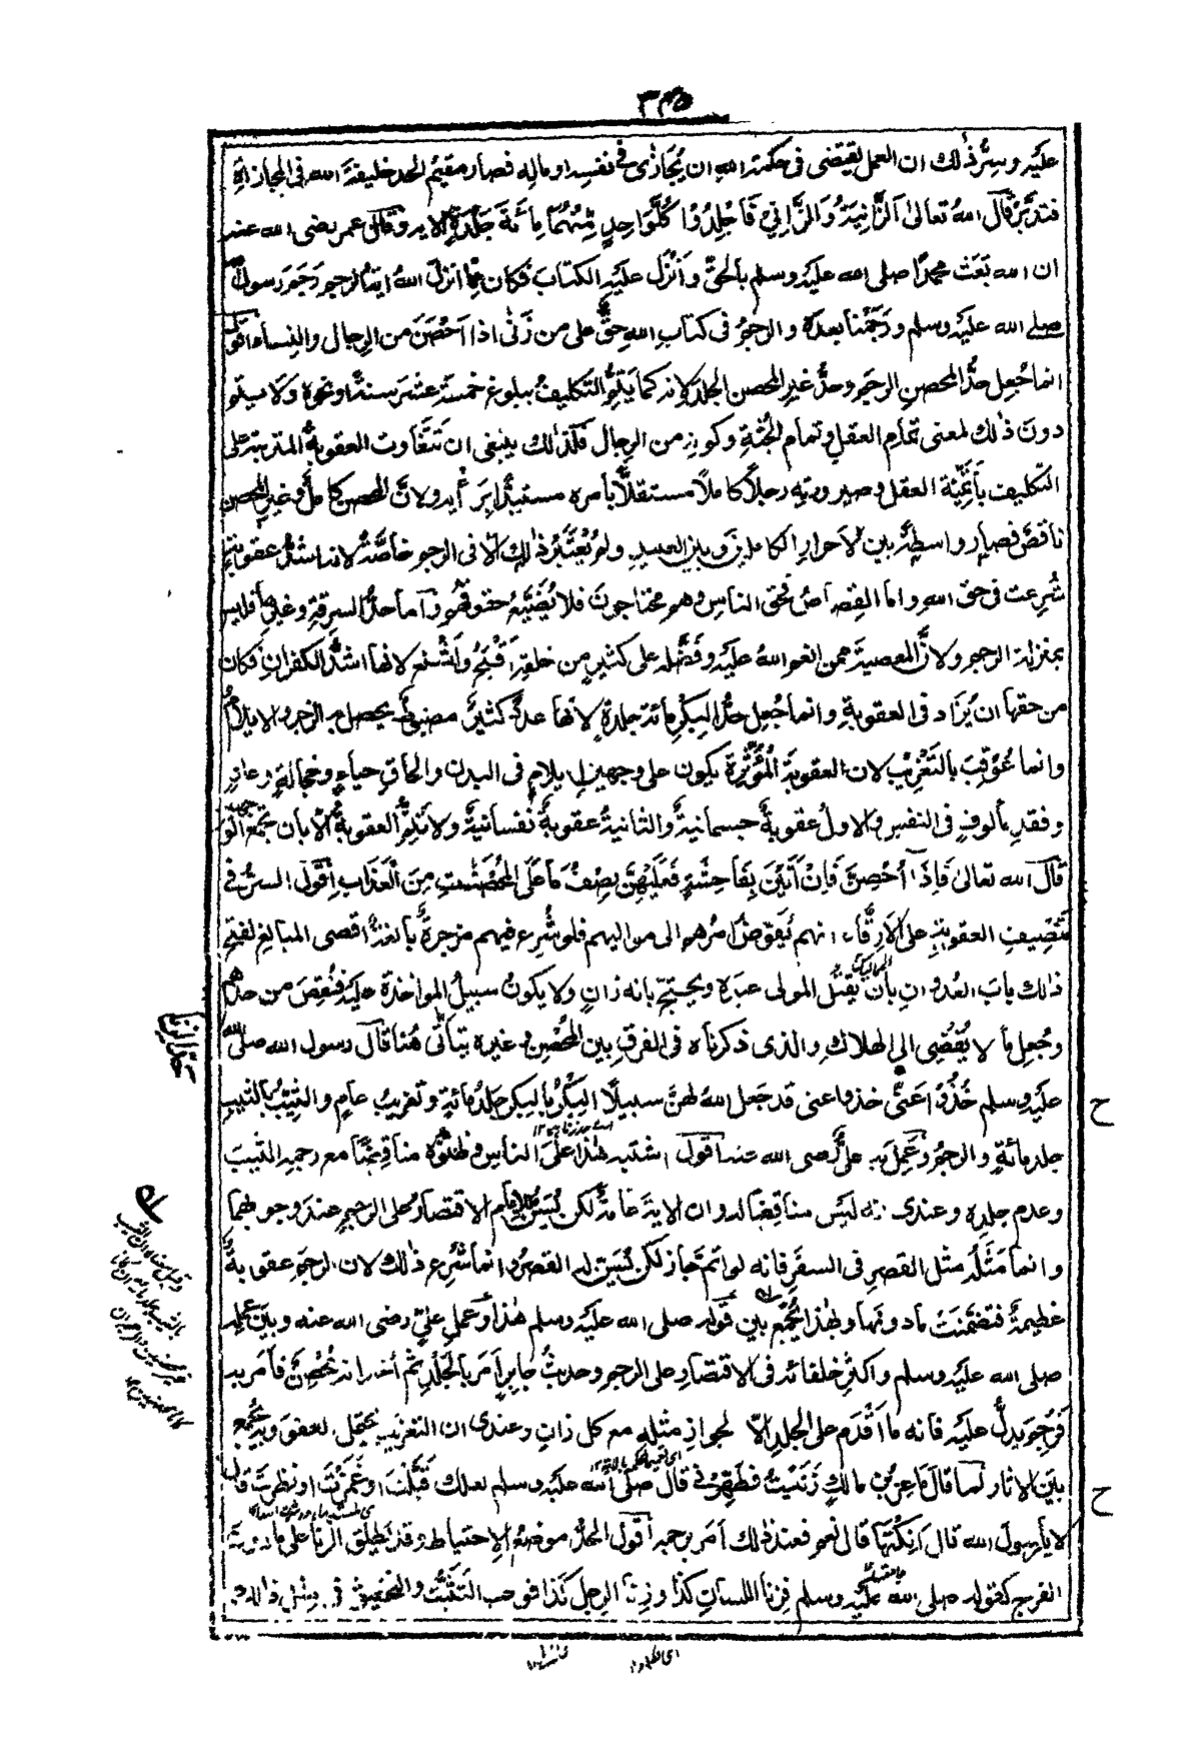 ٣٣٥
عليه وسر ذلك ان العمل يقتضى فى حكمة الله ان يُجازٰى فى نفسه او ماله فصار مقيم الحد خليفة الله فى المجازاة
فتدبر قال الله تعالىٰ اَلزَّانِيَةُ وَالزَّانِيْ فَاجْلِدُوْا كُلَّ وَاحِدٍ مِّنْهُمَا مِائَةَ جَلْدَةٍ الاية وقال عمر رضى الله عنه
ان الله بَعَثَ محمدًا صلى الله عليه وسلم بالحقِّ وَاَنْزَلَ عليه الكتابَ فكان مِمَّا انزلَ اللهُ ايةُ الرجم رَجَمَ رسولُ الله
صلے الله عليه وسلم ورَجَمْنا بعدهٗ والرجمُ فى كتاب اللهِ حقٌّ على من زَنٰى اذا اَحْصَنَ من الرجال والنساء اقول
انما جُعِل حدُّ المحصن الرجمَ وحدُّ غيرِ المحصن الجلدَ لانه كما يَتِمُّ التكليفُ ببلوغ خمسةَ عشرَ سنةً او نحوه ولا يتم
دونَ ذٰلك لمعنى تمامِ العقل وتمام الجُثَّةِ وكونِه من الرجال فلذٰلك ينبغى ان تتفاوت العقوبةُ المترتبة على
التكليف بأتَمِّيَّة العقل وصيرورتِه رجلاً كاملاً مستقلاًّ بأمره مستبدًّا برَأْيِه ولانَّ المحصن كاملٌ وغير المحصن
ناقصٌ فصار واسطةً بين الاحرار الكاملين وبين العبيدِ ولم يُعْتَبَرْ ذٰلك الّا فى الرجم خاصّةً لانه اشدُّ عقوبةٍ
شُرِعت فى حق اللهِ واما القصاصُ فحق الناس وهم محتاجونَ فلا يُضَيَّعُ حقوقُهم وَأما حدُّ السرقة وغيرِها فليس
بمنزلة الرجم ولانَّ المعصيةَ ممن انعم اللهُ عليه وفَضَّلَه على كثيرٍ من خلقه اَقْبَحُ واَشْنَع لانها اشدُّ الكفران فكان
من حقها ان يُزَادَ فى العقوبةِ وانما جُعِل حدُّ البِكْرِ مائةَ جلدةٍ لانها عددٌ كثيرٌ مضبوطٌ يحصل به الزجر والايلامُ
وانما عُوقِبَ بالتَّغْرِيْب لان العقوبةَ المُؤَثِّرَةَ يكون على وجهين ايلامٍ فى البدن والحاقِ حياءٍ وخجالةٍ وعارٍ
وفقدِ مألوفٍ فى النفس والاولُ عقوبةٌ جسمانيةٌ والثانيةُ عقوبةٌ نفسانيةٌ ولا تَتِمُّ العقوبةُ الّا بان تجمع الوجهين
قال الله تعالىٰ فَاِذَا اُحْصِنَّ فَاِنْ اَتَيْنَ بِفَاحِشَةٍ فَعَلَيْهِنَّ نِصْفُ مَا عَلَى الْمُحْصَنٰتِ مِنَ الْعَذَابِ اقول السرُّ فى
تنصيفِ العقوبةِ على الاَرِقَّاء انهم يُفَوَّضُ امرُهم الى مواليهم فلو شُرِع فيهم مزجرةٌ بالغةٌ اقصى المبالغ لفتح
ذٰلك بابَ العُدوانِ بأن يقتل المولى عبدَه ويحتجّ بانه زانٍ ولا يكونُ سبيلُ المواخذة عليه فنُقِصَ من حدِّهم
وجُعِل ما لا يُفْضِى الى الهلاك والذى ذكرناه فى الفرقِ بين المُحْصِن وغيره يتأتّٰى هُنا قال رسول الله صلى الله
عليه وسلم خُذُوْا عَنِّى خذوا عنى قد جَعل اللهُ لهن سبيلًا البِكْرُ بالبكر جلدُ مائةٍ وتغريبُ عامٍ والثيّبُ بالثيب
جلد مائةٍ والرجمُ وعَمِلَ به علىٌّ رضى الله عنه اقول اشتبه هٰذا عَلَى الناس وظنوه مناقضًا مع رجمِه الثيبَ
وعدمِ جلدِه وعندى انه ليس مناقضًا له وان الايةَ عامةٌ لكن يُسَنُّ للامام الاقتصارُ على الرجم عند وجوبهما
وانما مَثَلُه مثل القصرِ فى السفر فانه لو اتم جاز لكن يُسَنُّ له القصرُ وانما شُرِع ذٰلك لان الرجمَ عقوبةٌ
عظيمةٌ فتضمنت ما دونها وبهٰذا يُجمَع بين قوله صلى الله عليه وسلم هٰذا وعملِ علىٍّ رضى الله عنه وبينَ عمله
صلى الله عليه وسلم واكثرِ خلفائه فى الاقتصارِ على الرجم وحديثُ جابرٍ اَمَرَ بالجَلْدِ ثم اُخبر انه مُحْصِنٌ فأمر به
فَرُجِم يدلّ عليه فانه ما اَقْدَم على الجلد الّا لجوازِ مثلِه مع كل زانٍ وعندى ان التغريب يحتمل العفو وبه يُجمع
بين الاثار لما قال مَاعِزُ بْنُ مالك زَنَيْتُ فطهِّرْنى قال صلى الله عليه وسلم لعلك قَبَّلْتَ او غمزتَ او نظرتَ قال
لا يا رسولَ الله قال اَنِكْتَهَا قال نعم فعند ذٰلك اَمَرَ برجمه اقول الحدُّ موضعُ الاحتياط وقد يُطلق الزنا على ما دون
الفرج كقوله صلى الله عليه وسلم فزنا اللسان كذا وزنا الرجل كذا فوجب التَّثَبُّتُ والتحقيق فى مثل ذالك
حدّ الزنا
ح
ح